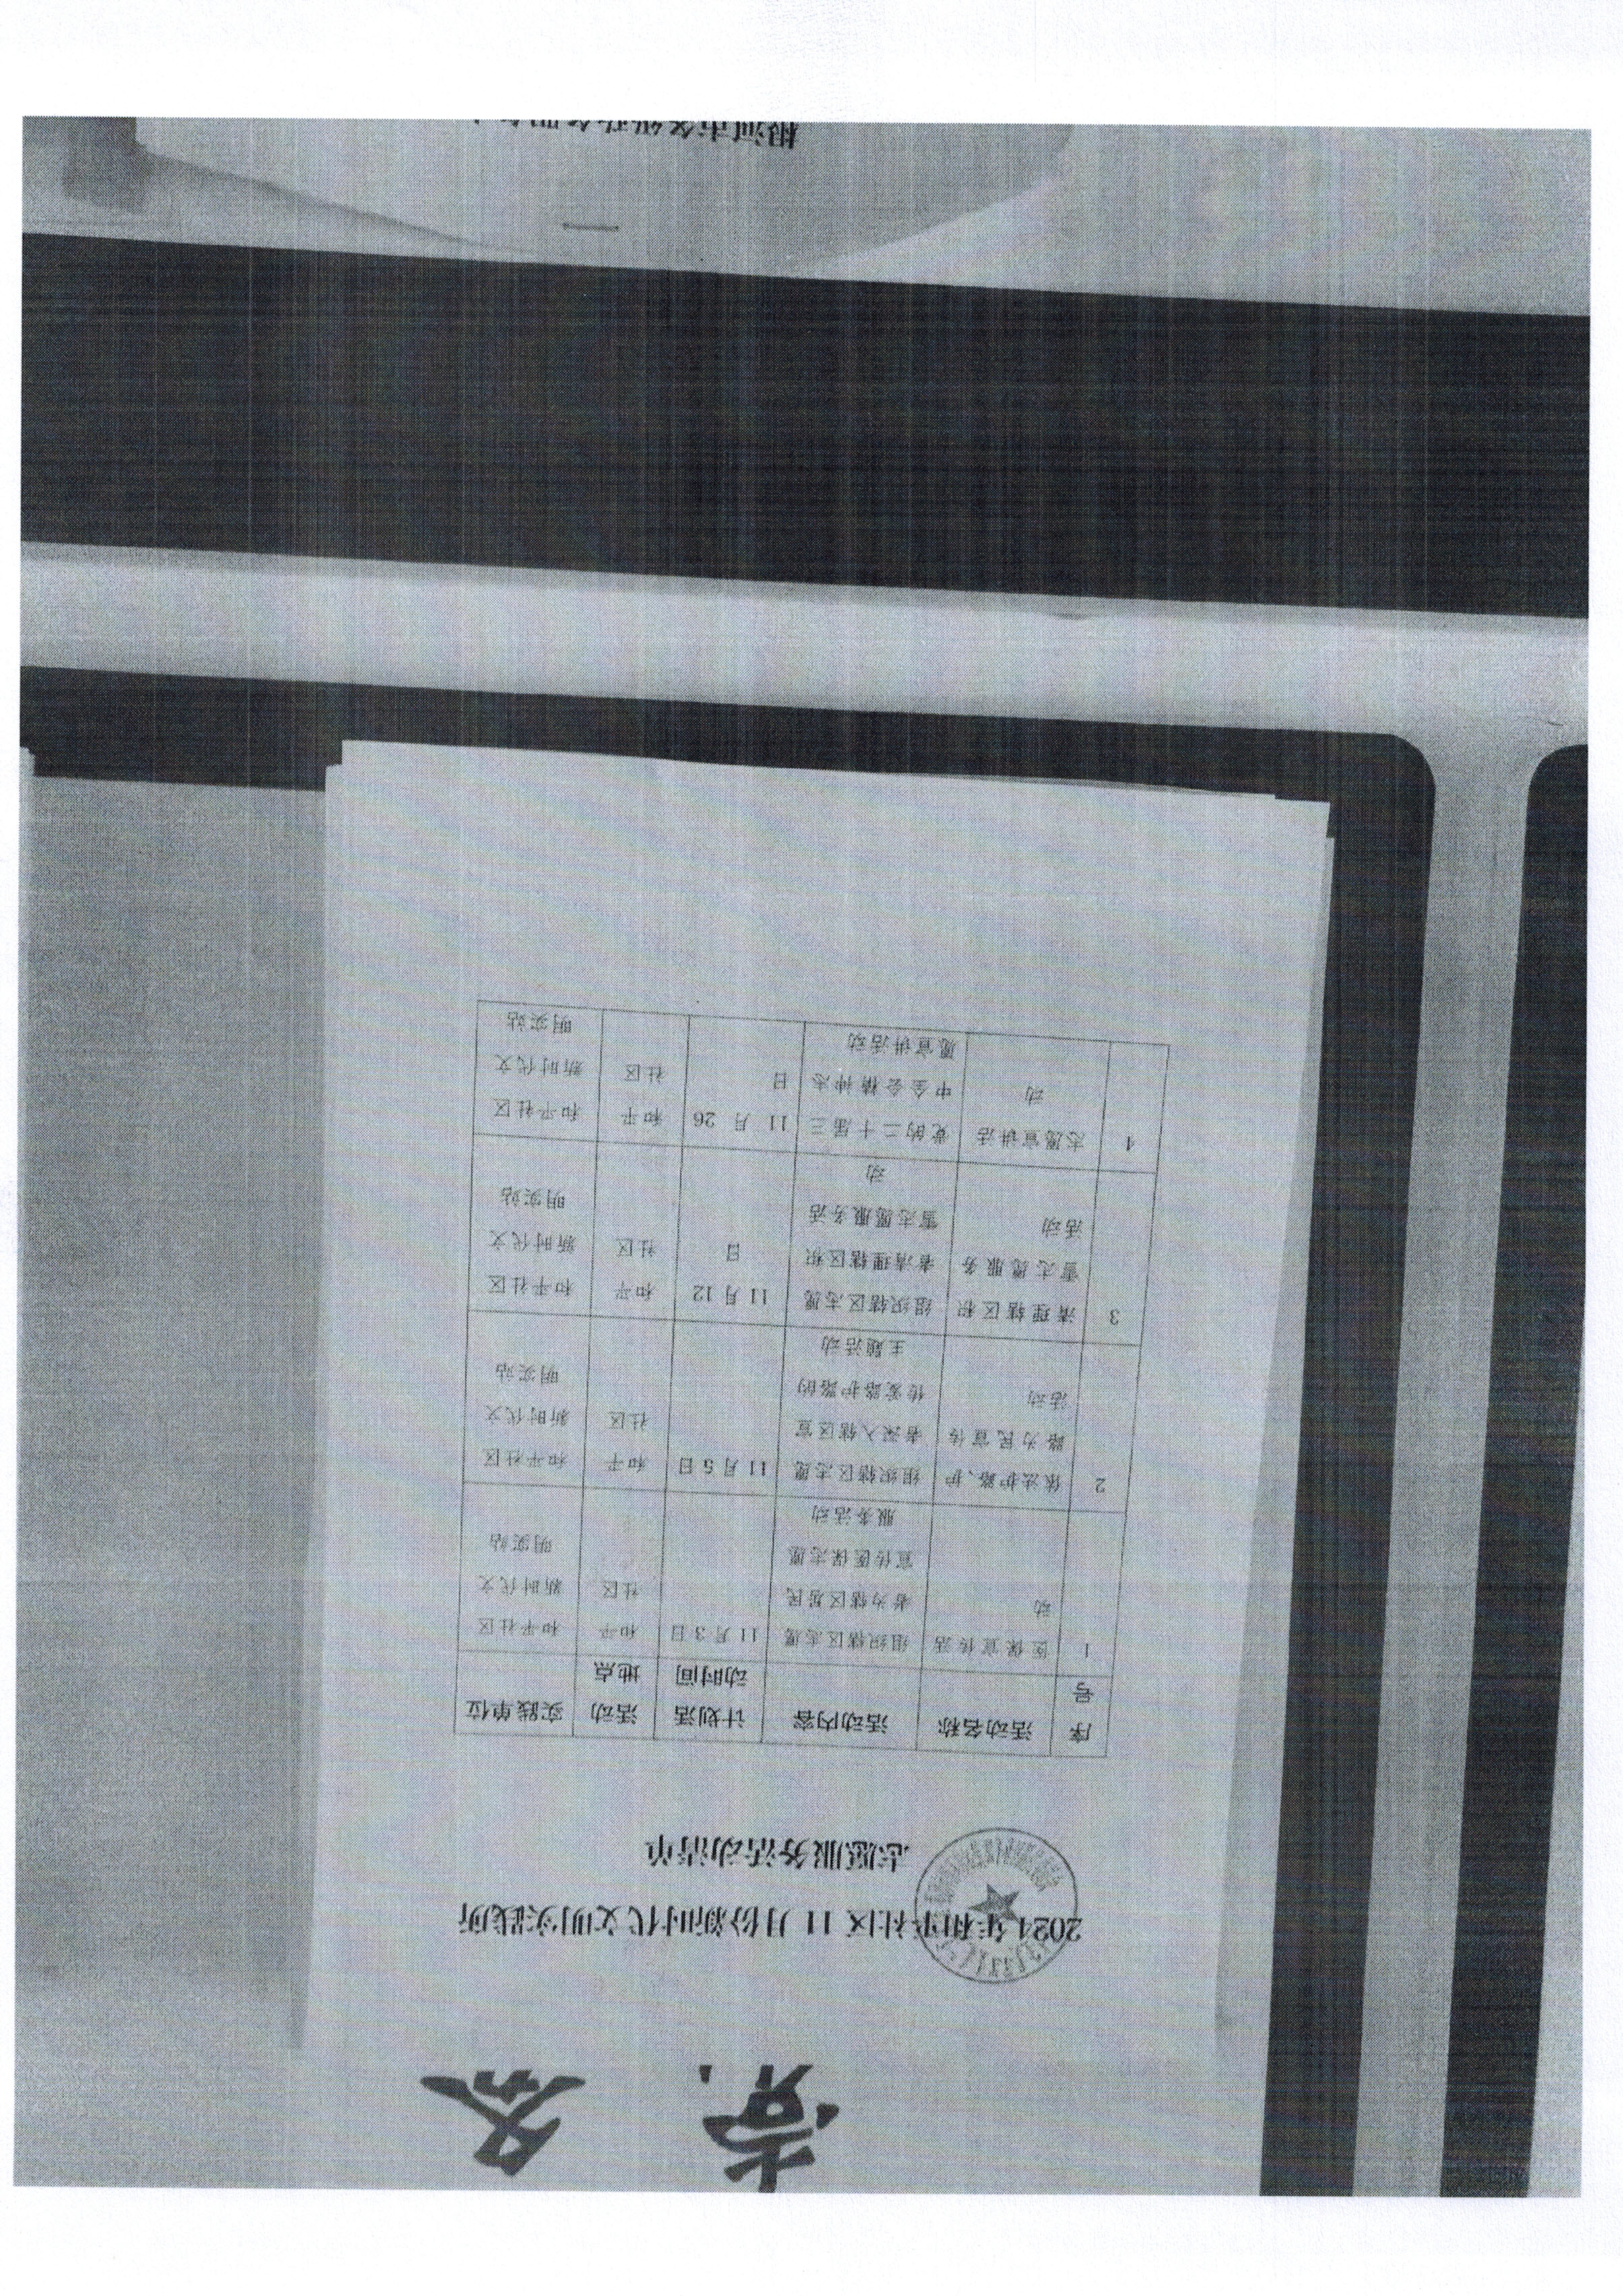 务
2024年和平社区11月份新时代文明实践所
志愿服务活动清单
序号 活动名称 活动内容 计划活动时间 活动地点 实践单位
1 医保宣传活动 组织辖区志愿者为辖区居民宣传医保志愿服务活动 11月3日 和平社区 和平社区新时代文明实站
2 依法护路、护路为民宣传活动 组织辖区志愿者深入辖区宣传爱路护路的主题活动 11月5日 和平社区 和平社区新时代文明实站
3 清理辖区积雪志愿服务活动 组织辖区志愿者清理辖区积雪志愿服务活动 11月12日 和平社区 和平社区新时代文明实站
4 志愿宣讲活动 党的二十届三中全会精神志愿宣讲活动 11月26日 和平社区 和平社区新时代文明实站
根河市各级政务服务